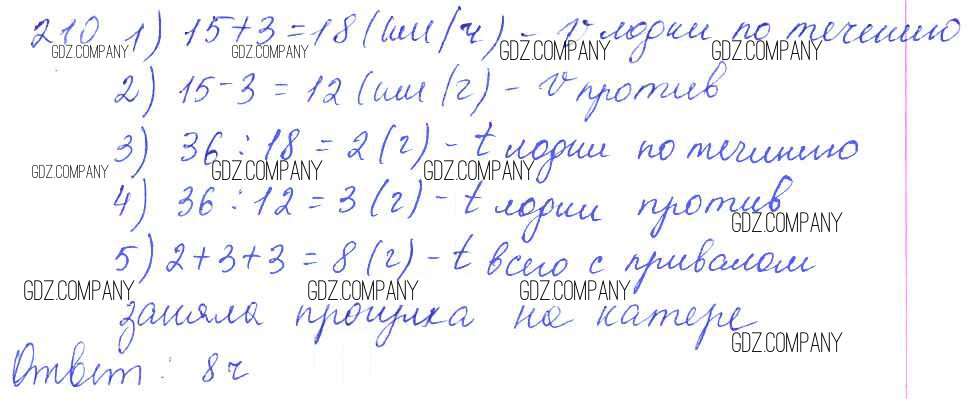 210 1) 15+3=18 (км/ч) - v лодки по течению
2) 15-3 = 12 (км/ч) - v против
3) 36 : 18 = 2 (ч) - t лодки по течинию
4) 36 : 12 = 3 (ч) - t лодки против
5) 2+3+3 = 8 (ч) - t всего с привалом
заняла прогулка на катере
Ответ: 8 ч
GDZ.COMPANY
GDZ.COMPANY
GDZ.COMPANY
GDZ.COMPANY
GDZ.COMPANY
GDZ.COMPANY
GDZ.COMPANY
GDZ.COMPANY
GDZ.COMPANY
GDZ.COMPANY
GDZ.COMPANY
GDZ.COMPANY